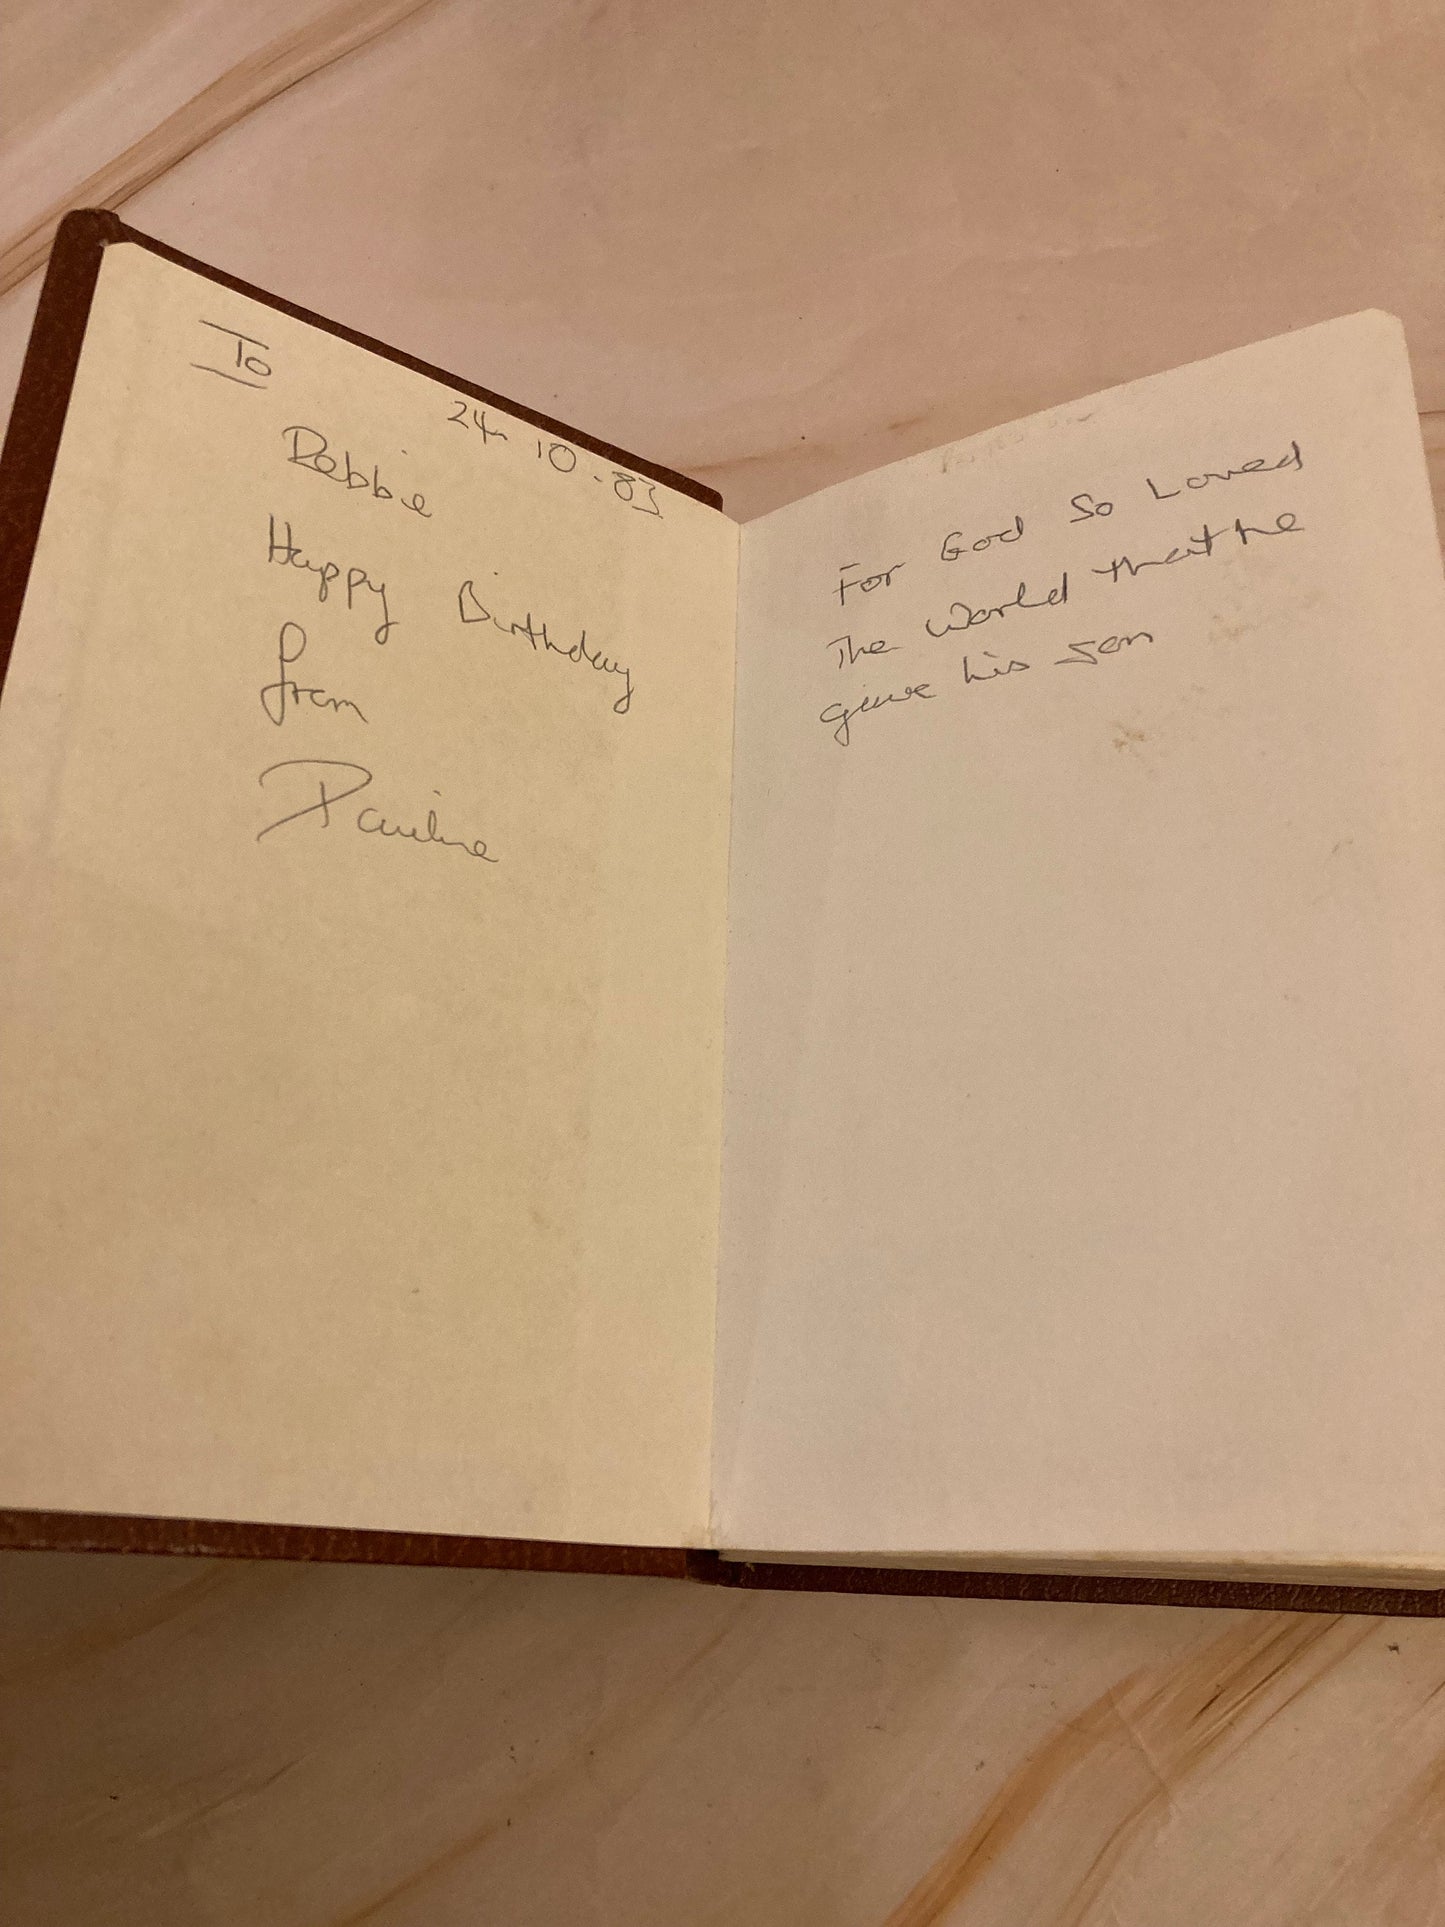 To
24-10-83
Debbie
Happy Birthday
from
Pauline
For God So Loved
The World that he
give his son